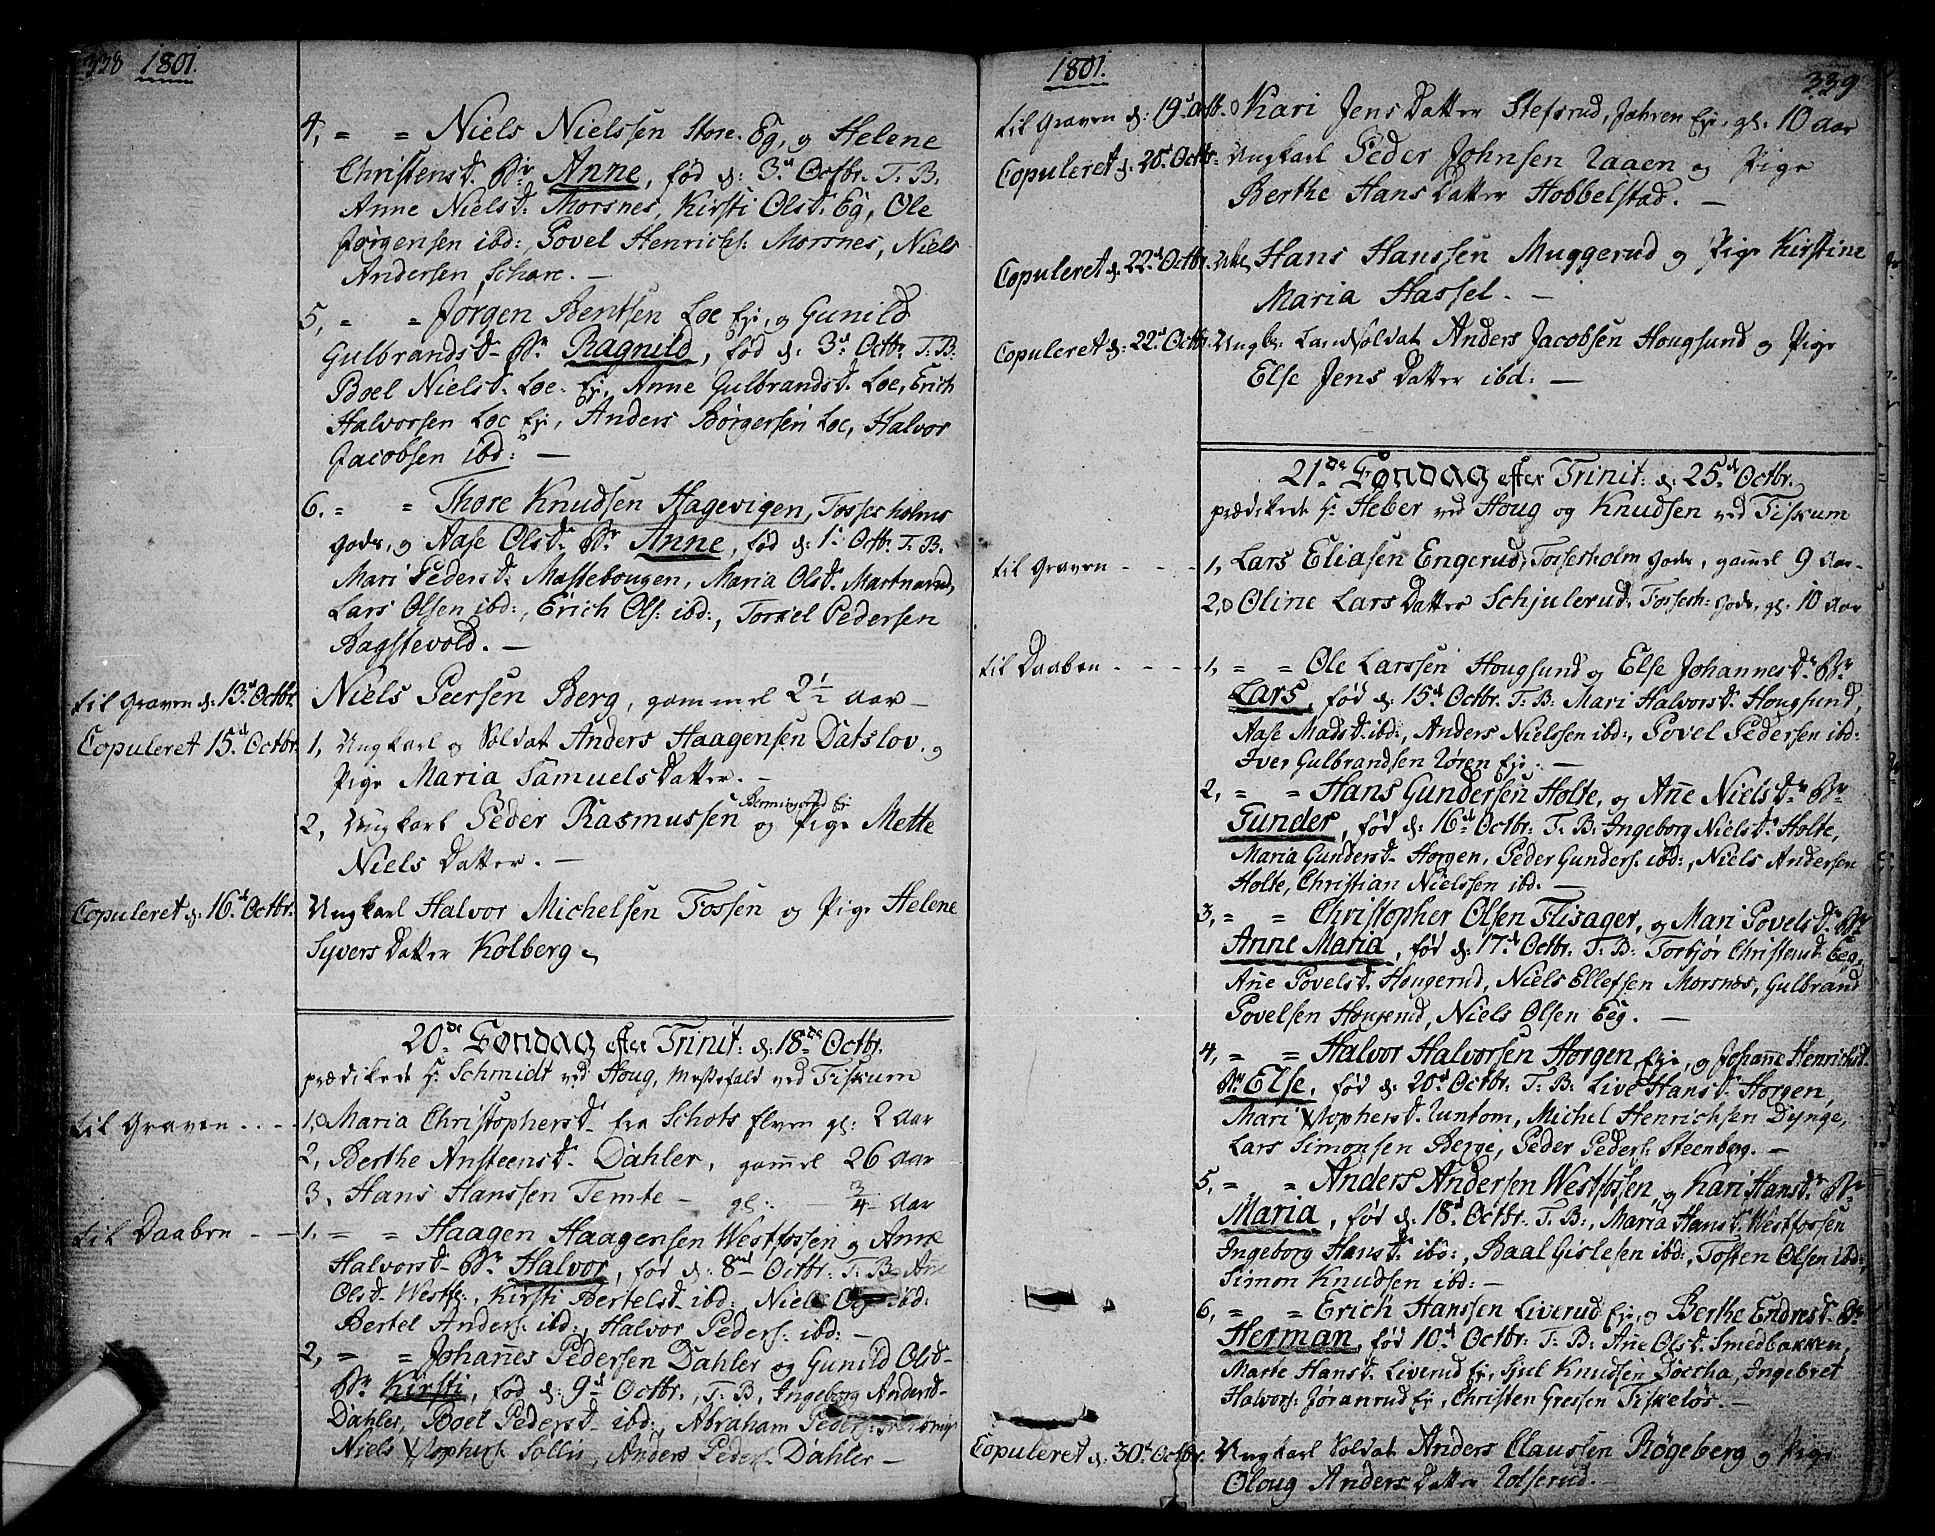 338 1801.
4, = = Niels Nielssen Store Eg, og Helene
Christensd. Br Anne, fød d: 3d Octbr. T. B.
Anne Nielsd. Morsnes, Kirsti Olsd. Eg, Ole
Jørgensen ibd:, Povel Henrichs: Morsnes, Niels
Andersen Schare. —
5, = = Jørgen Bentsen Loe Eje, og Gunild
Gulbrandsd. Br Ragnild, fød d: 3d Octbr. T. B.
Boel Nielsd. Loe Ej, Anne Gulbrandsd. Loe, Erich
Halvorsen Loe Eje, Anders Børgersen Loe, Halvor
Jacobsen ibd: —
6. = = Thore Knudsen Hagevigen, Fossesholms
gods, og Aase Olsd. Br Anne, fød d: 1. Octbr. T. B.
Mari Pedersd. Mastebougen, Maria Olsd.
Lars Olsen ibd:, Erich Ols: ibd:, Torkel Pedersen
Bagstevold. —
til Graven d: 13d Octbr. Niels Peersen Berg, gammel 2½ aar —
Copuleret 15d Octbr. 1, Ungkarl og Soldat Anders Haagensen Datslov. og
Pige Maria Samuels Datter. —
2, Ungkarl Peder Rasmussen og Pige Mette
Niels Datter. —
Copuleret d: 16d Octbr. Ungkarl Halvor Michelsen Fossen og Pige Helene
Syvers Datter Kolberg
20de Søndag efter Trinit: d: 18de Octbr.
prædikede Hr Schmidt ved Houg, Messefald ved Fiskum
til Graven . . . . 1, Maria Christophersd. fra Schots Elven gl: 2 aar
2, Berthe Ansteensd. Dahler, gammel 26 aar
3, Hans Hanssen Temte — gl: ¾ aar
til Daaben - - 1. = = Haagen Haagensen Westfossen og Anne
Halvorsd. Br Halvor, fød d: 8de Octbr: T. B. Ane
Olsd. Westf:, Kirsti Bertelsd. ibd: Niels ibd:
Bertel Anders: ibd:, Halvor Peders: ibd: —
2, = = Johannes Pedersen Dahler og Gunild Olsd.
Br Kirsti, fød d: 9d Octbr., T. B. Ingeborg Andersd.
Dahler, Boel Pedersd. ibd:, Abraham Peders:
Niels Xstophers: Sollii, Anders Peders: Dahler —
1801. 339
til Graven d: 19d Octb. Kari Jens Datter Stefsrud, Jahren Eje, gl: 10 Aar
Copuleret d: 20d Octbr. Ungkarl Peder Johnsen Raaen og Pige
Berthe Hans Datter Hobbelstad. —
Copuleret d: 22d Octbr. Hans Hanssen Muggerud og Pige Kirstine
Maria Hassel. —
Copuleret d: 22d Octbr. Ungk: Landsoldat Anders Jacobsen Hougsund og Pige
Else Jens Datter ibd: —
21de Søndag efter Trinit: d: 25d Octbr.
prædikede Hr Heber ved Houg og Knudsen ved Fiskum
til Graven - - - - 1, Lars Eliasen Engerud, Fossesholm gods, gammel 9 Aar
2, Oline Lars Datter Schjulerud, Fossesh: gods, gl: 10 aar
til Daaben - - - - 1, = = Ole Larssen Hougsund og Else Johannesd. Br
Lars, fød d: 15d Octbr. T. B: Mari Halvorsd. Hougsund,
Aase Madsd. ibd:, Anders Nielssen ibd:, Povel Pedersen ibd:
Iver Gulbrandsen Røren Eje. —
2, = = Hans Gundersen Holte, og Ane Nielsd. Br
Gunder, fød d: 16d Octbr: T. B: Ingeborg Nielsd. Holte,
Maria Gundersd. Horgen, Peder Gunders: ibd:, Niels Andersen
Holte, Christian Nielssen ibd. —
3, = = Christopher Olsen Flisager, og Mari Povelsd. Br
Anne Maria, fød d: 17d Octbr. T. B: Torbjør Christensd. Eeg,
Ane Povelsd. Hougerud, Niels Ellefsen Morsnes, Gulbrand
Povelsen Hougerud, Niels Olsen Eeg. —
4, = = Halvor Halvorsen Horgen Eje, og Johanne Henrichsd.
Br Else, fød d: 20d Octbr: T. B: Live Hansd. Horgen,
Mari Xstophersd. Runtom, Michel Henrichsen Dynge,
Lars Simonsen Berge, Peder Peders: Steenberg. —
5, = = Anders Andersen Westfossen, og Kari Hansd. Br
Maria, fød d: 18d Octbr: T. B:, Maria Hansd. Westfossen
Ingeborg Hansd. ibd:, Baal Gislesen ibd:, Tosten Olsen ibd:,
Simon Knudsen ibd: —
6, = = Erich Hanssen Liverud Eje, og Berthe Endresd. Br
Herman, fød 10d Octbr: T. B: Ane Olsd. Smedbakken,
Marte Hansd. Liverud Ej, Knudsen Ingebret
Halvors: Joranrud Ej, Christen Gressen Fiskeløs. —
Copuleret d: 30d Octbr. Ungkarl Soldat Anders Claussen Røgeberg og Pige
Oloug Anders Datter Rolserud.